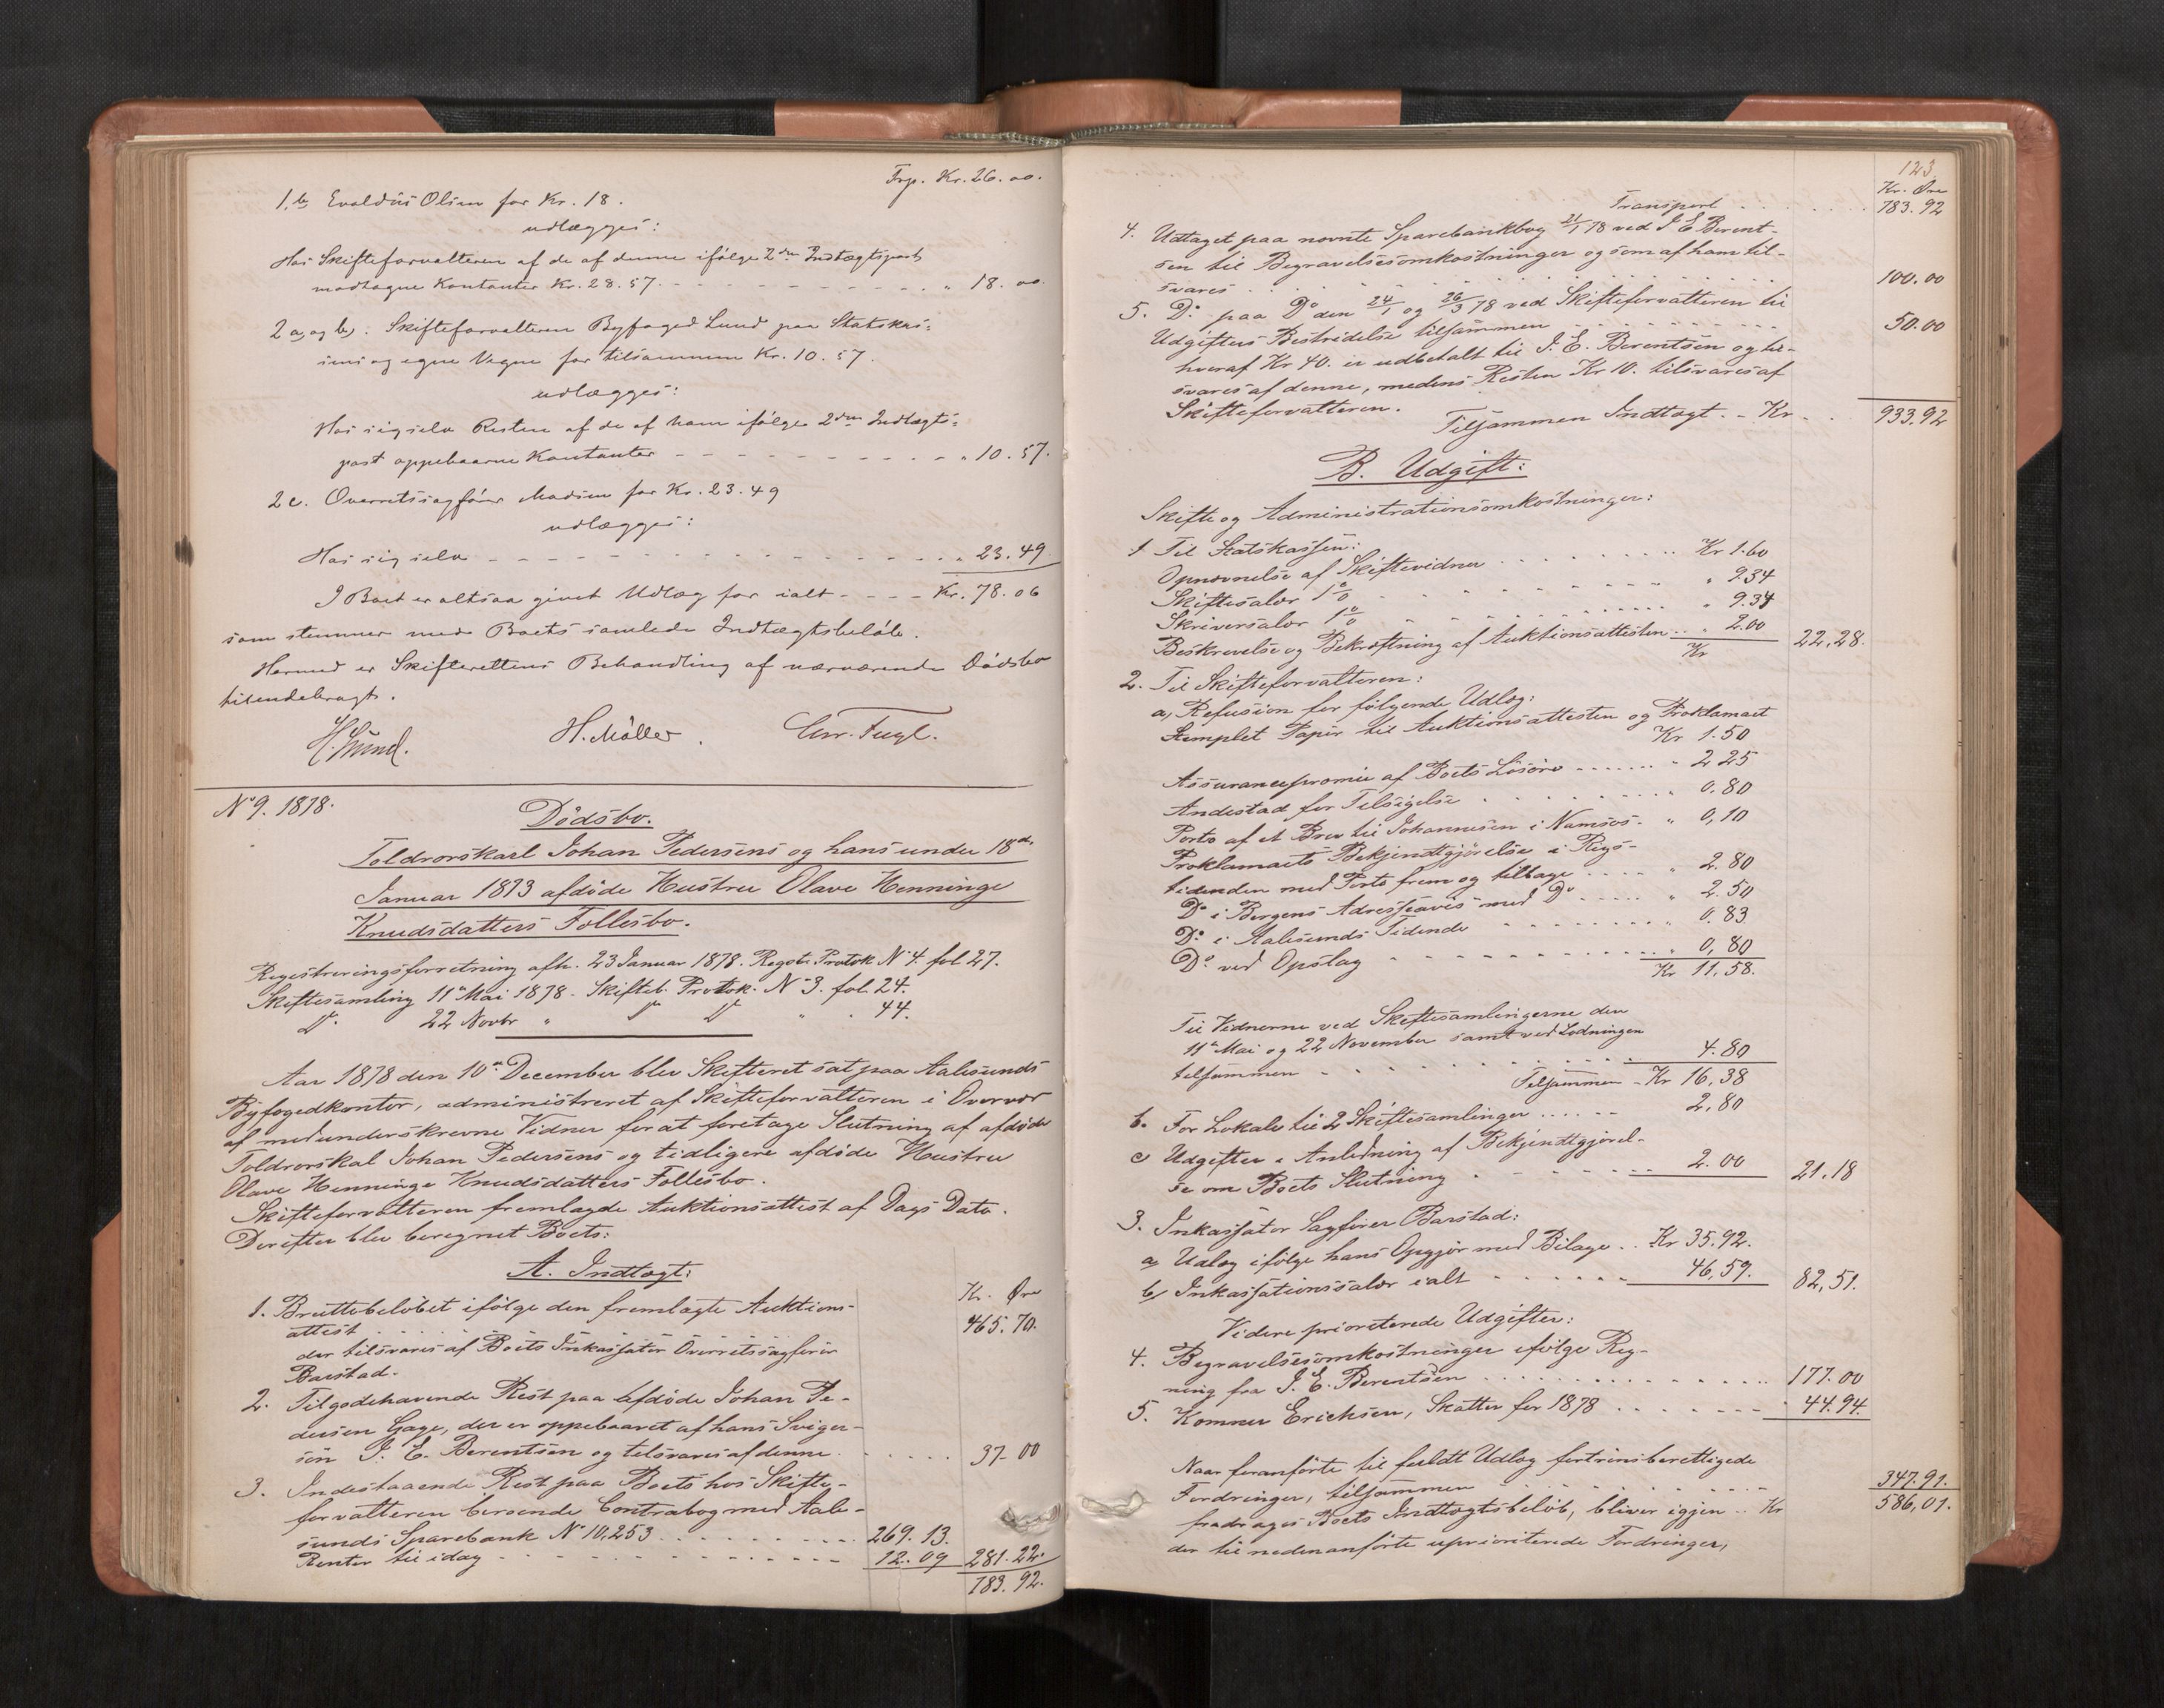 Trp. Kr. 26.00.
1, b, Evaldus Olsen for Kr. 18.
udlægges:
Hos Skifteforvalteren af de af denne ifølge 2den Indtægtspost
modtagne Kontanter Kr. 28.57. - - - " 18.00.
2 a, og b,: Skifteforvalteren Byfoged Lund paa Statskas-
sens og egne Vegne for tilsammen Kr. 10.57.
udlægges:
Hos sig selv Resten af de af ham ifølge 2den Indtægts-
post oppebaarne Kontanter - - - " 10.57.
2 c. Overretssagfører Madsen for Kr. 23.49
udlægges:
Hos sig selv - - - " 23.49.
I Boet er altsaa givet Udlæg for ialt - - - Kr. 78.06
som stemmer med Boets samlede Indtægtsbeløb.
Hermed er Skifterettens Behandling af nærværende Dødsbo
tilendebragt.
H. Lund. H. Møller. Chr. Fugl.
No 9. 1878.
Dødsbo.
Toldrorskarl Johan Pedersens og hans under 18de
Januar 1873 afdøde Hustru Olave Henninge
Knudsdatters Fællesbo.
Registreringsforretning afh. 23 Januar 1878. Regstr. Protok No 4. fol 27.
Skiftesamling 11te Mai 1878. Skifteb. Protok. No 3. fol. 24.
Do 22 Novbr " Do Do " " 44.
Aar 1878 den 10de December blev Skifteret sat paa Aalesunds
Byfogedkontor, administreret af Skifteforvalteren i Overvær
af medunderskrevne Vidner for at foretage Slutning af afdøde
Toldrorskal Johan Pedersens og tidligere afdøde Hustru
Olave Henninge Knudsdatters Fællesbo.
Skifteforvalteren fremlagde Auktionsattest af Dags Dato.
Derefter blev beregnet Boets:
A. Indtægt:
Kr. Øre
1. Bruttobeløbet ifølge den fremlagte Auktions-
attest . . . 465.70.
der tilsvares af Boets Inkassator Overretssagfører
Barstad.
2. Tilgodehavende Rest paa afdøde Johan Pe-
dersen Gage, der er oppebaaret af hans Sviger-
søn J. E. Berentsen og tilsvares af denne . . . 37.00
3. Indestaaende Rest paa Boets hos Skifte-
forvalteren beroende Contrabog med Aale-
sunds Sparebank No 10,253 . . . 269.13.
Renter til idag - - - 12.09 281.22.
783.92.
123.
Kr. Øre
Transport . . . 783.92
4. Udtaget paa nævnte Sparebankbog 21/1 78 ved J E Berent-
sen til Begravelsesomkostninger og som af ham til-
svares . . . 100.00
5. Do paa Do den 24/1 og 26/3 78 ved Skifteforvalteren til
Udgifters Bestridelse tilsammen . . . 50.00
hvoraf Kr 40. er udbetalt til J. E. Berentsen og til-
svares af denne, medens Resten Kr 10. tilsvares af
Skifteforvalteren.
Tilsammen Indtægt. - Kr . . 933.92
B. Udgift:
Skifte og Administrationsomkostninger:
1 Til Statskassen:
Opnævnelse af Skiftevidner . . . Kr 1.60
Skiftesalær 1% . . . " 9.34
Skriversalær 1% . . . " 9.34
Beskrivelse og Bekræftning af Auktionsattesten . . " 2.00
Kr 22,28.
2. Til Skifteforvalteren:
a, Refusion for følgende Udlæg:
Stemplet Papir til Auktionsattesten og Proklamaet
Kr 1.50
Assurancepræmie af Boets Løsøre . . . " 2 25
Andestad for Tilsigelse . . . " 0.80
Porto af et Brev til Johannesen i Namsos. " 0,10
Proklamaets Bekjendtgjørelse i Rigs-
tidenden med Porto frem og tilbage . . . " 2.80
Do i Bergens Adresseavis med Do . . . " 2.50
Do i Aalesunds Tidende . . . 0.83
Do ved Opslag - - - " 0,80
Kr 11.58.
Til Vidnerne ved Skiftesamlingerne den
11te Mai og 22 November samt ved Lodningen
tilsammen - - - 4.80
Tilsammen - Kr 16,38
b. For Lokale til 2 Skiftesamlinger . . . 2,80
c Udgifter i Anledning af Bekjendtgjørel-
se om Boets Slutning . . . 2.00 21.18
3. Inkassator Sagfører Barstad:
a, Udlæg ifølge hans Opgjør med Bilage . . Kr 35.92.
b, Inkassationssalær ialt - - - 46,59. 82,51.
Videre prioriterede Udgifter:
4. Begravelsesomkostninger ifølge Reg-
ning fra J. E. Berentsen . . . 177.00
5. Kæmner Erichsen, Skatter for 1878 . . . 44.94.
Naar foranførte til fuldt Udlæg fortrinsberettigede
Fordringer, tilsammen . . . 347.91.
fradrages Boets Indtægtsbeløb, bliver igjen . . Kr 586,01.
der til nedenanførte uprioriterede Fordringer,